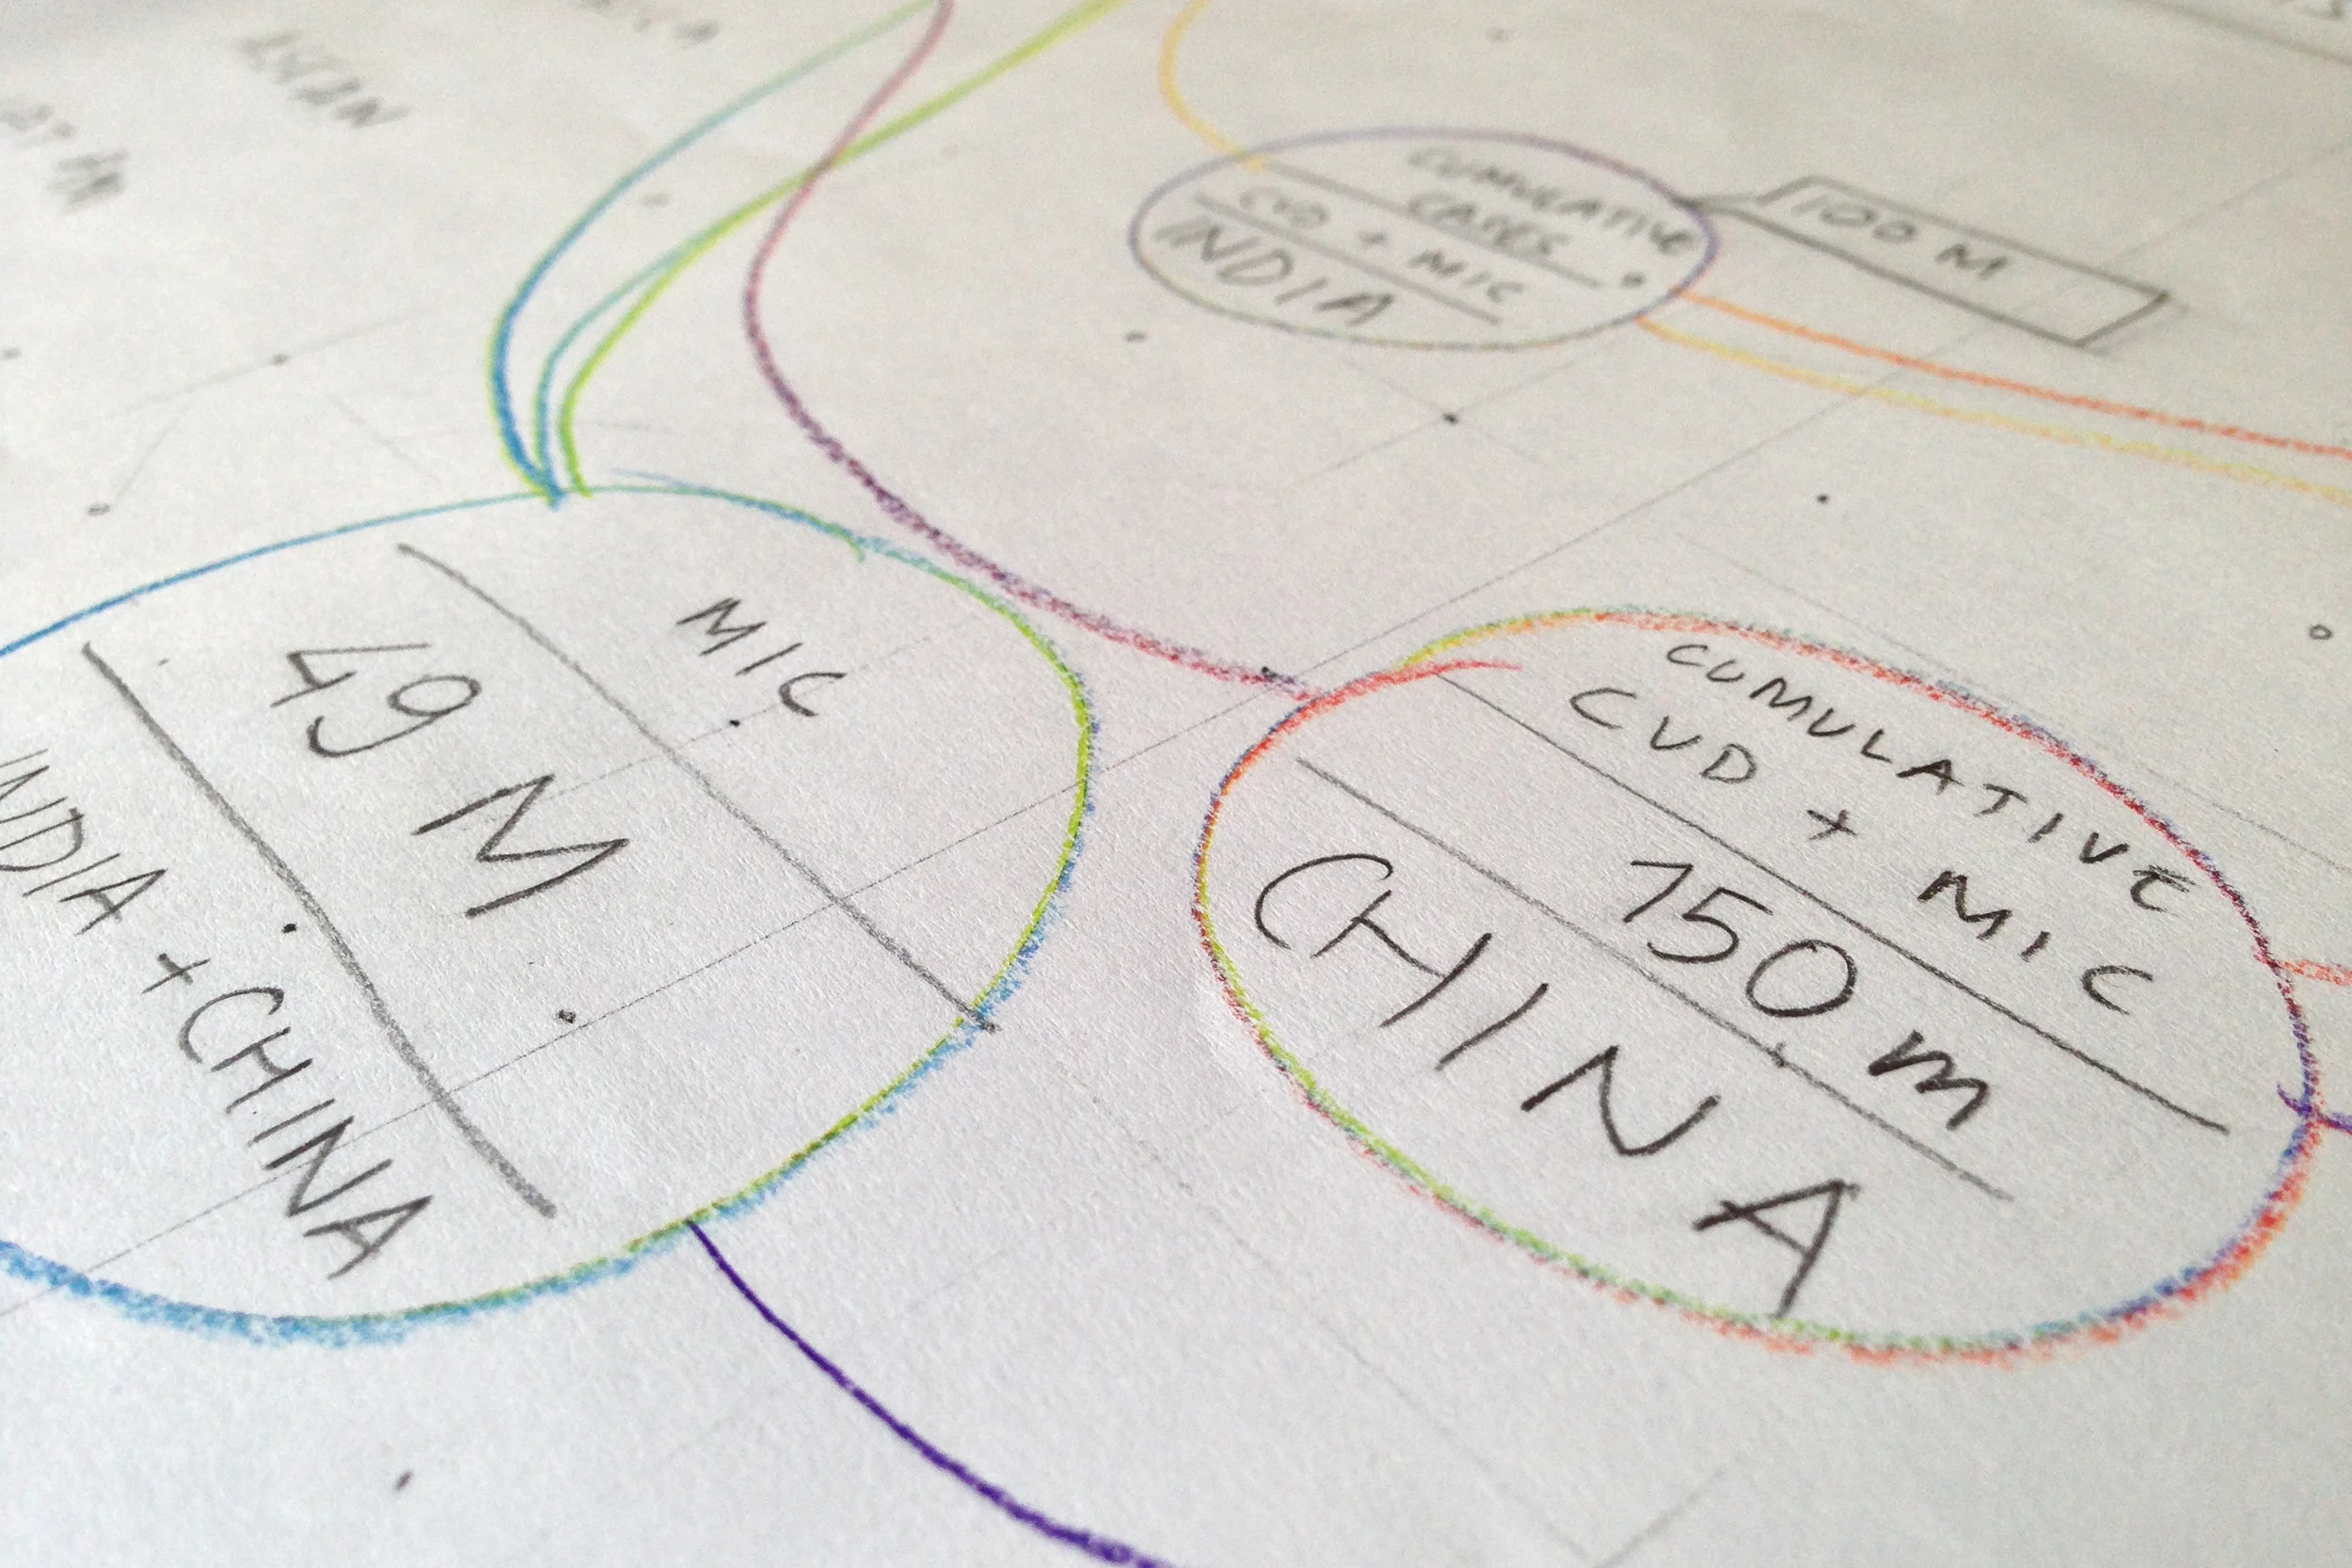 CUMULATIVE
CASES
CVD + MIC
INDIA
100 M
MIC
49 M
INDIA + CHINA
CUMULATIVE
CVD + MIC
150 m
CHINA